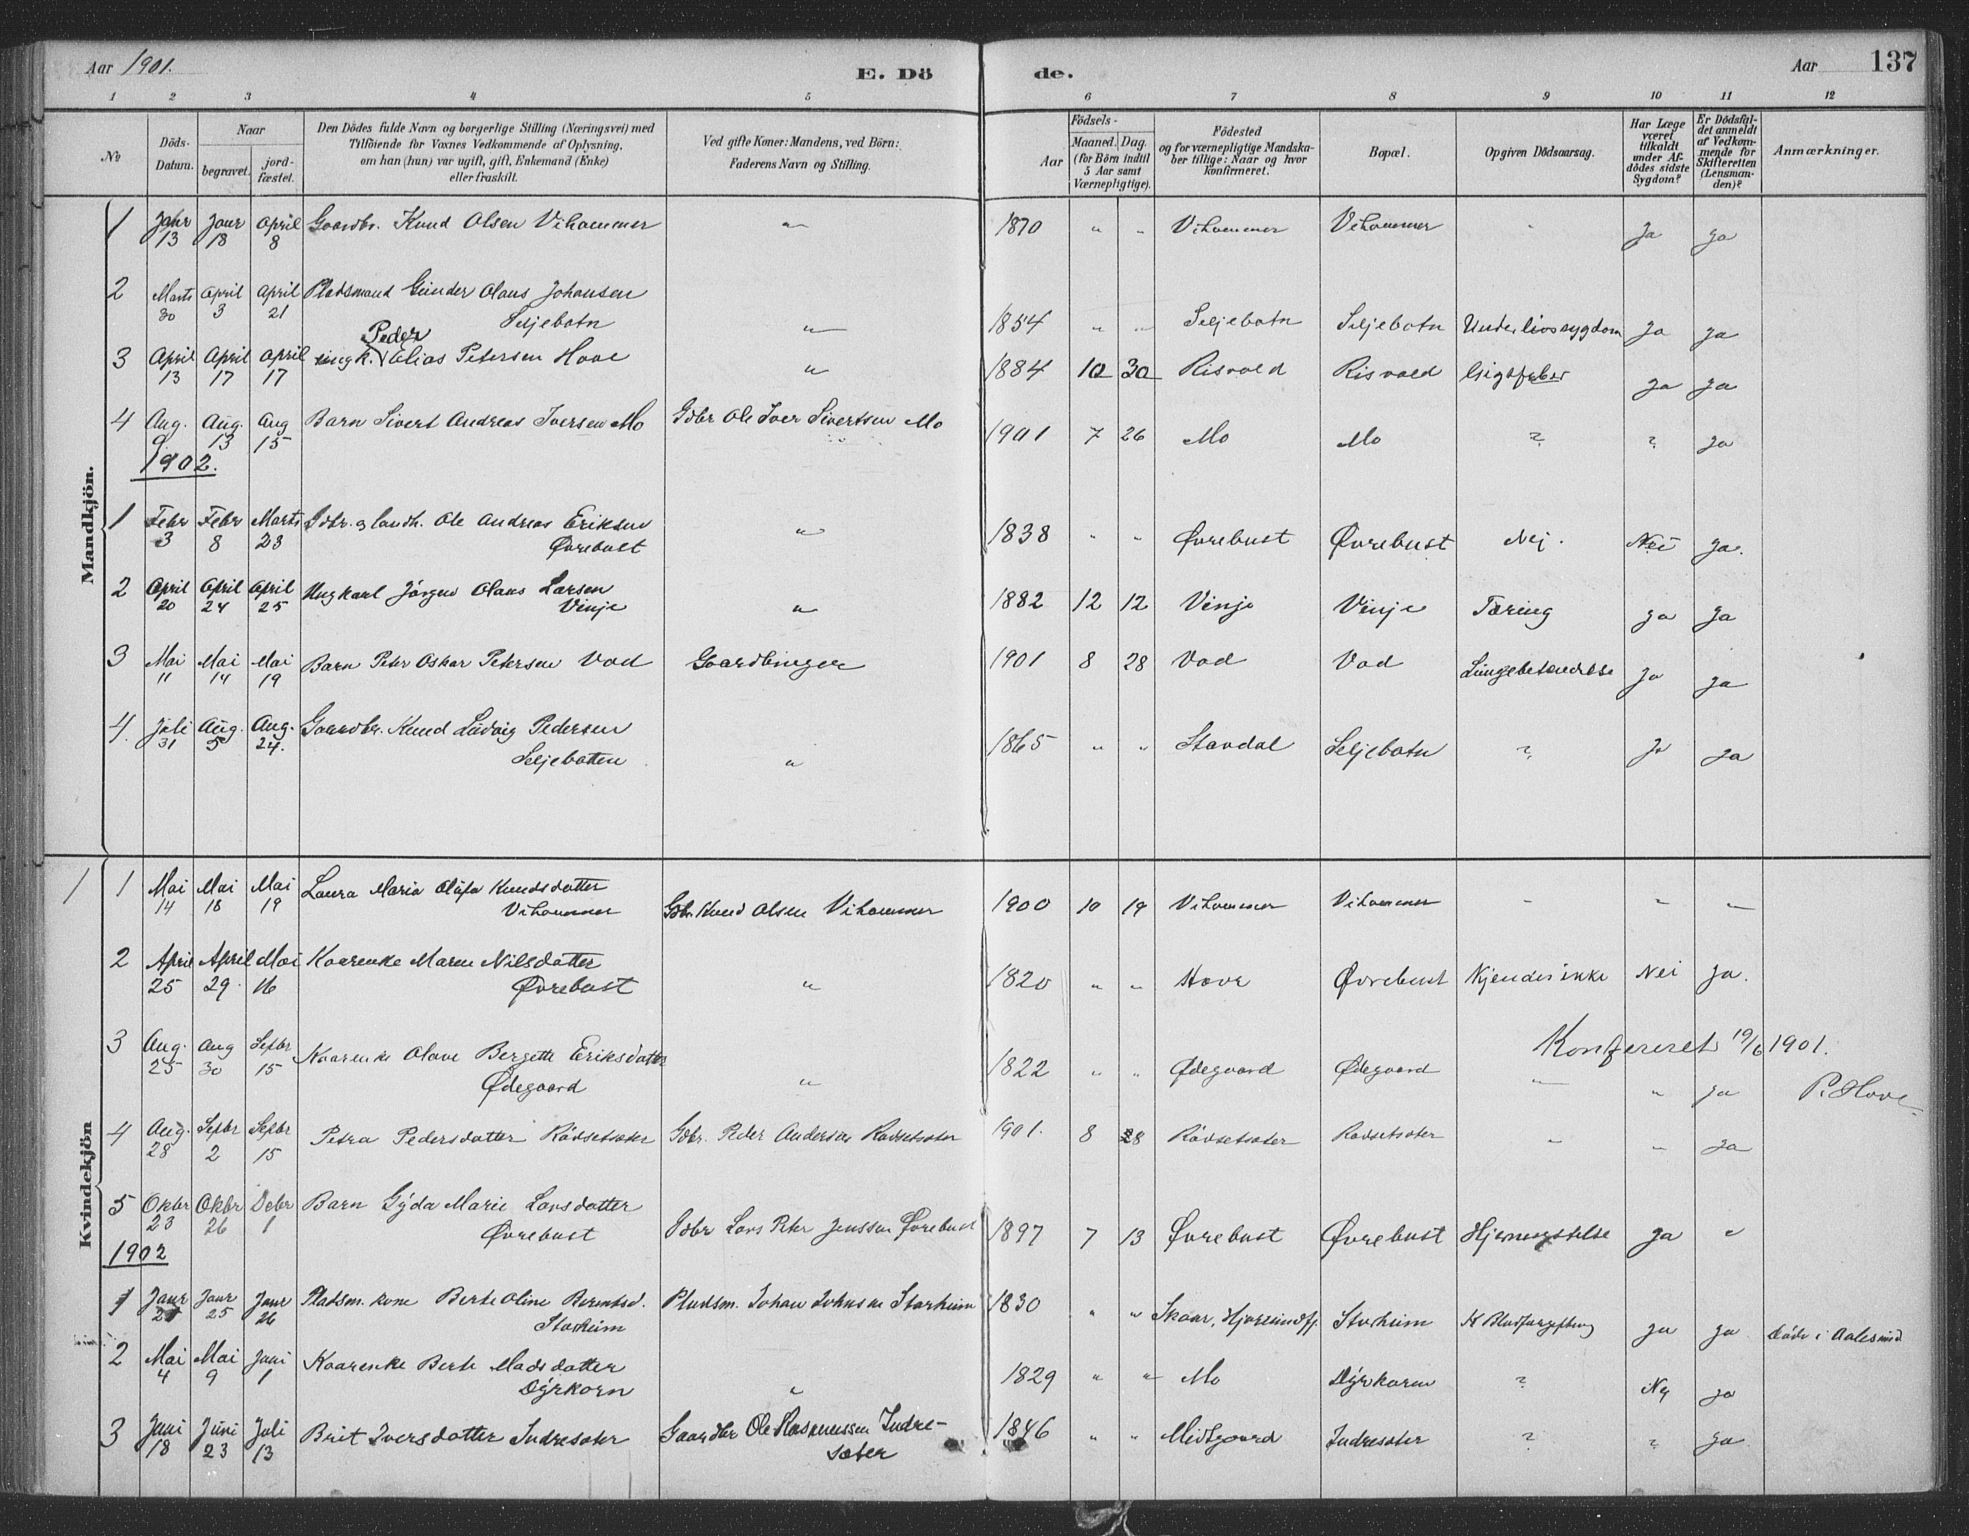 Aar 1901.
E. Dö
de.
Aar
137
1 2 3 4 5 6 7 8 9 10 11 12
No
Döds-Datum.
Naar
begravet.
jord-fæstet.
Den Dödes fulde Navn og borgerlige Stilling (Næringsvei) med
Tilföiende for Voxnes Vedkommende af Oplysning.
om han (hun) var ugift, gift, Enkemand (Enke)
eller fraskilt.
Ved gifte Koner: Mandens, ved Börn:
Faderens Navn og Stilling.
Födsels-
Aar
Maaned. Dag.
(for Börn indtil
5 Aar samt
Værnepligtige).
Födested
og for værnepligtige Mandska-
ber tillige: Naar og hvor
konfirmeret.
Bopæl.
Opgiven Dödsaarsag.
Har Læge
været
tilkaldt
under Af-
dödes sidste
Sygdom?
Er Dödsfal-
det anmeldt
af Vedkom-
mende for
Skifteretten
(Lensman-
den)?
Anmærkninger.
Mandkjön.
1 Janr 13 Janr 18 April 8 Gaardbr. Knud Olsen Vihammer " 1870 " " Vihammer Vihammer " Ja Ja
2 Marts 30 April 3 April 21 Pladsmand Gunder Olaus Johansen
Seljebotn " 1854 " " Seljebotn Seljebotn Underlivssygdom Ja Ja
Peder
3 April 13 April 17 April 17 ungk. Elias Petersen Hove " 1884 10 30 Risvold Risvold Gigtfeber Ja Ja
4 Aug. 9 Aug. 13 Aug 15 Barn Sivert Andreas Iversen Mo Gdbr Ole Iver Sivertsen Mo 1901 7 26 Mo Mo ? ? Ja
1902.
1 Febr 3 Febr 8 Marts 23 Gdbr. og landh. Ole Andreas Eriksen
Øvrebust " 1838 " " Øvrebust Øvrebust Nej. Nei Ja.
2 April 20 April 24 April 25 Ungkarl Jørgen Olaus Larsen
Vinje " 1882 12 12 Vinje Vinje Tæring Ja Ja
3 Mai 11 Mai 14 Mai 19 Barn Peter Oskar Petersen Vad Gaardbruger 1901 8 28 Vad Vad Lungebetændelse Ja Ja
4. Juli 31 Aug. 5 Aug. 24. Gaardbr. Knud Ludvig Pedersen
Seljebotten " 1865 " " Standal Seljebotn ? Ja Ja
Kvindekjön
1 1 Mai 14 Mai 18 Mai 19 Laura Maria Olufa Knudsdatter
Vihammer Gbr. Knud Olsen Vihammer 1900 10 19 Vihammer Vihammer " " "
2 April 25 April 29. Mai 16 Kaarenke Maren Nilsdatter
Øvrebust " 1820 " " Hove Øvrebust Kjendes ikke Nei Ja.
3 Aug. 25 Aug 30 Septbr 15 Kaarenke Olave Bergette Eriksdatter
Ødegaard " 1822 " " Ødegaard Ødegaard " " Ja
Konfereret 19/6 1901.
P. Hove
4 Aug. 28 Septbr 2 Septbr 15 Petra Pedersdatter Rødsetsæter Gdbr. Peder Andersen Rødsetsæter 1901. 8 28 Rødsetsæter Rødsetsæter " " Ja
5 Okbr 23 Okbr 26 Debr 1 Barn Gyda Marie Larsdatter
Øvrebust Gdbr Lars Peter Jenssen Øvrebust 1897 7 13 Øvrebust Øvrebust Hjernerystelse Ja "
1902
1 Janr 21 Janr 25 Janr 26 Pladsm. kone Berte Oline Berntsd.
Storheim Pladsm. Johan Johnsen Storheim 1830 " " Skaar, Storheim Blodforgiftning Ja Ja Døde i Aalesund
2 Mai 4 Mai 9 Juni 1 Kaarenke Berte Madsdatter
Dyrkorn " 1829 " " Mo Dyrkorn ? Nej Ja
3 Juni 18 Juni 23 Juli 13 Brit Iversdatter Indresæter Gaardbr Ole Rasmussen Indre-
sæter 1846 " " Midtgaard Indresæter ? ? Ja